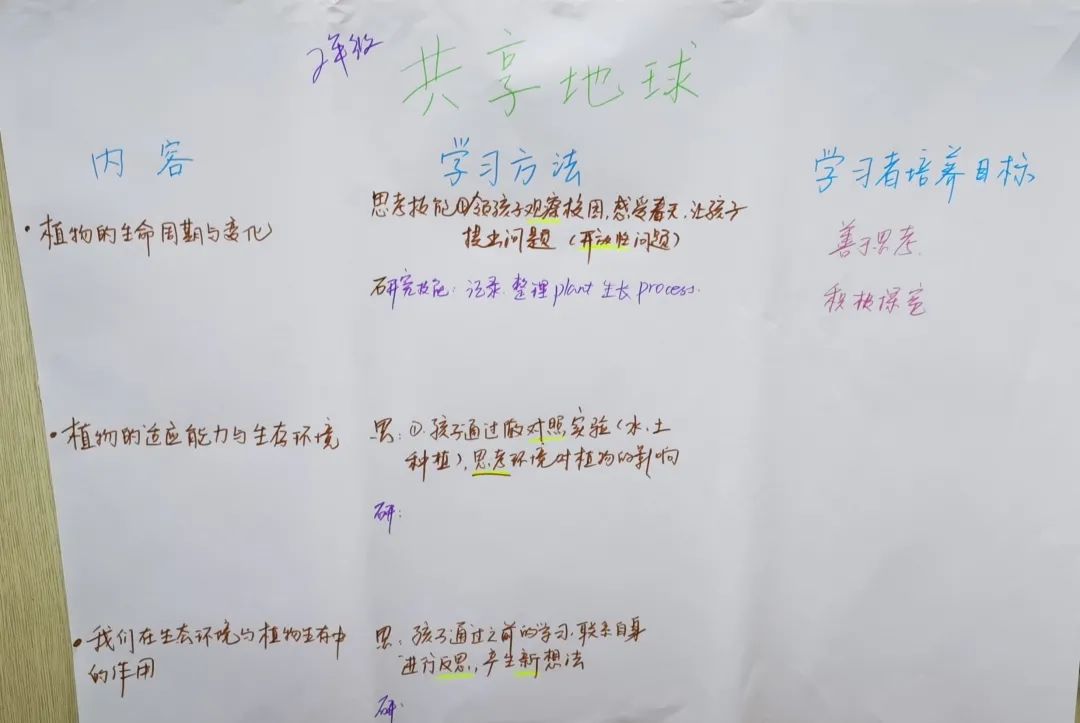 2年级 共享地球
内容 学习方法 学习者培养目标
·植物的生命周期与变化
思考技能①领孩子观察校园,感受春天,让孩子
提出问题(开放性问题)
研究技能:记录.整理plant生长process.
善于思考.
积极探究
·植物的适应能力与生态环境
思:①.孩子通过做对照实验(水、土
种植),思考环境对植物的影响
研:
·我们在生态环境与植物生存中
的作用
思:孩子通过之前的学习.联系自身
进行反思,产生新想法
研: